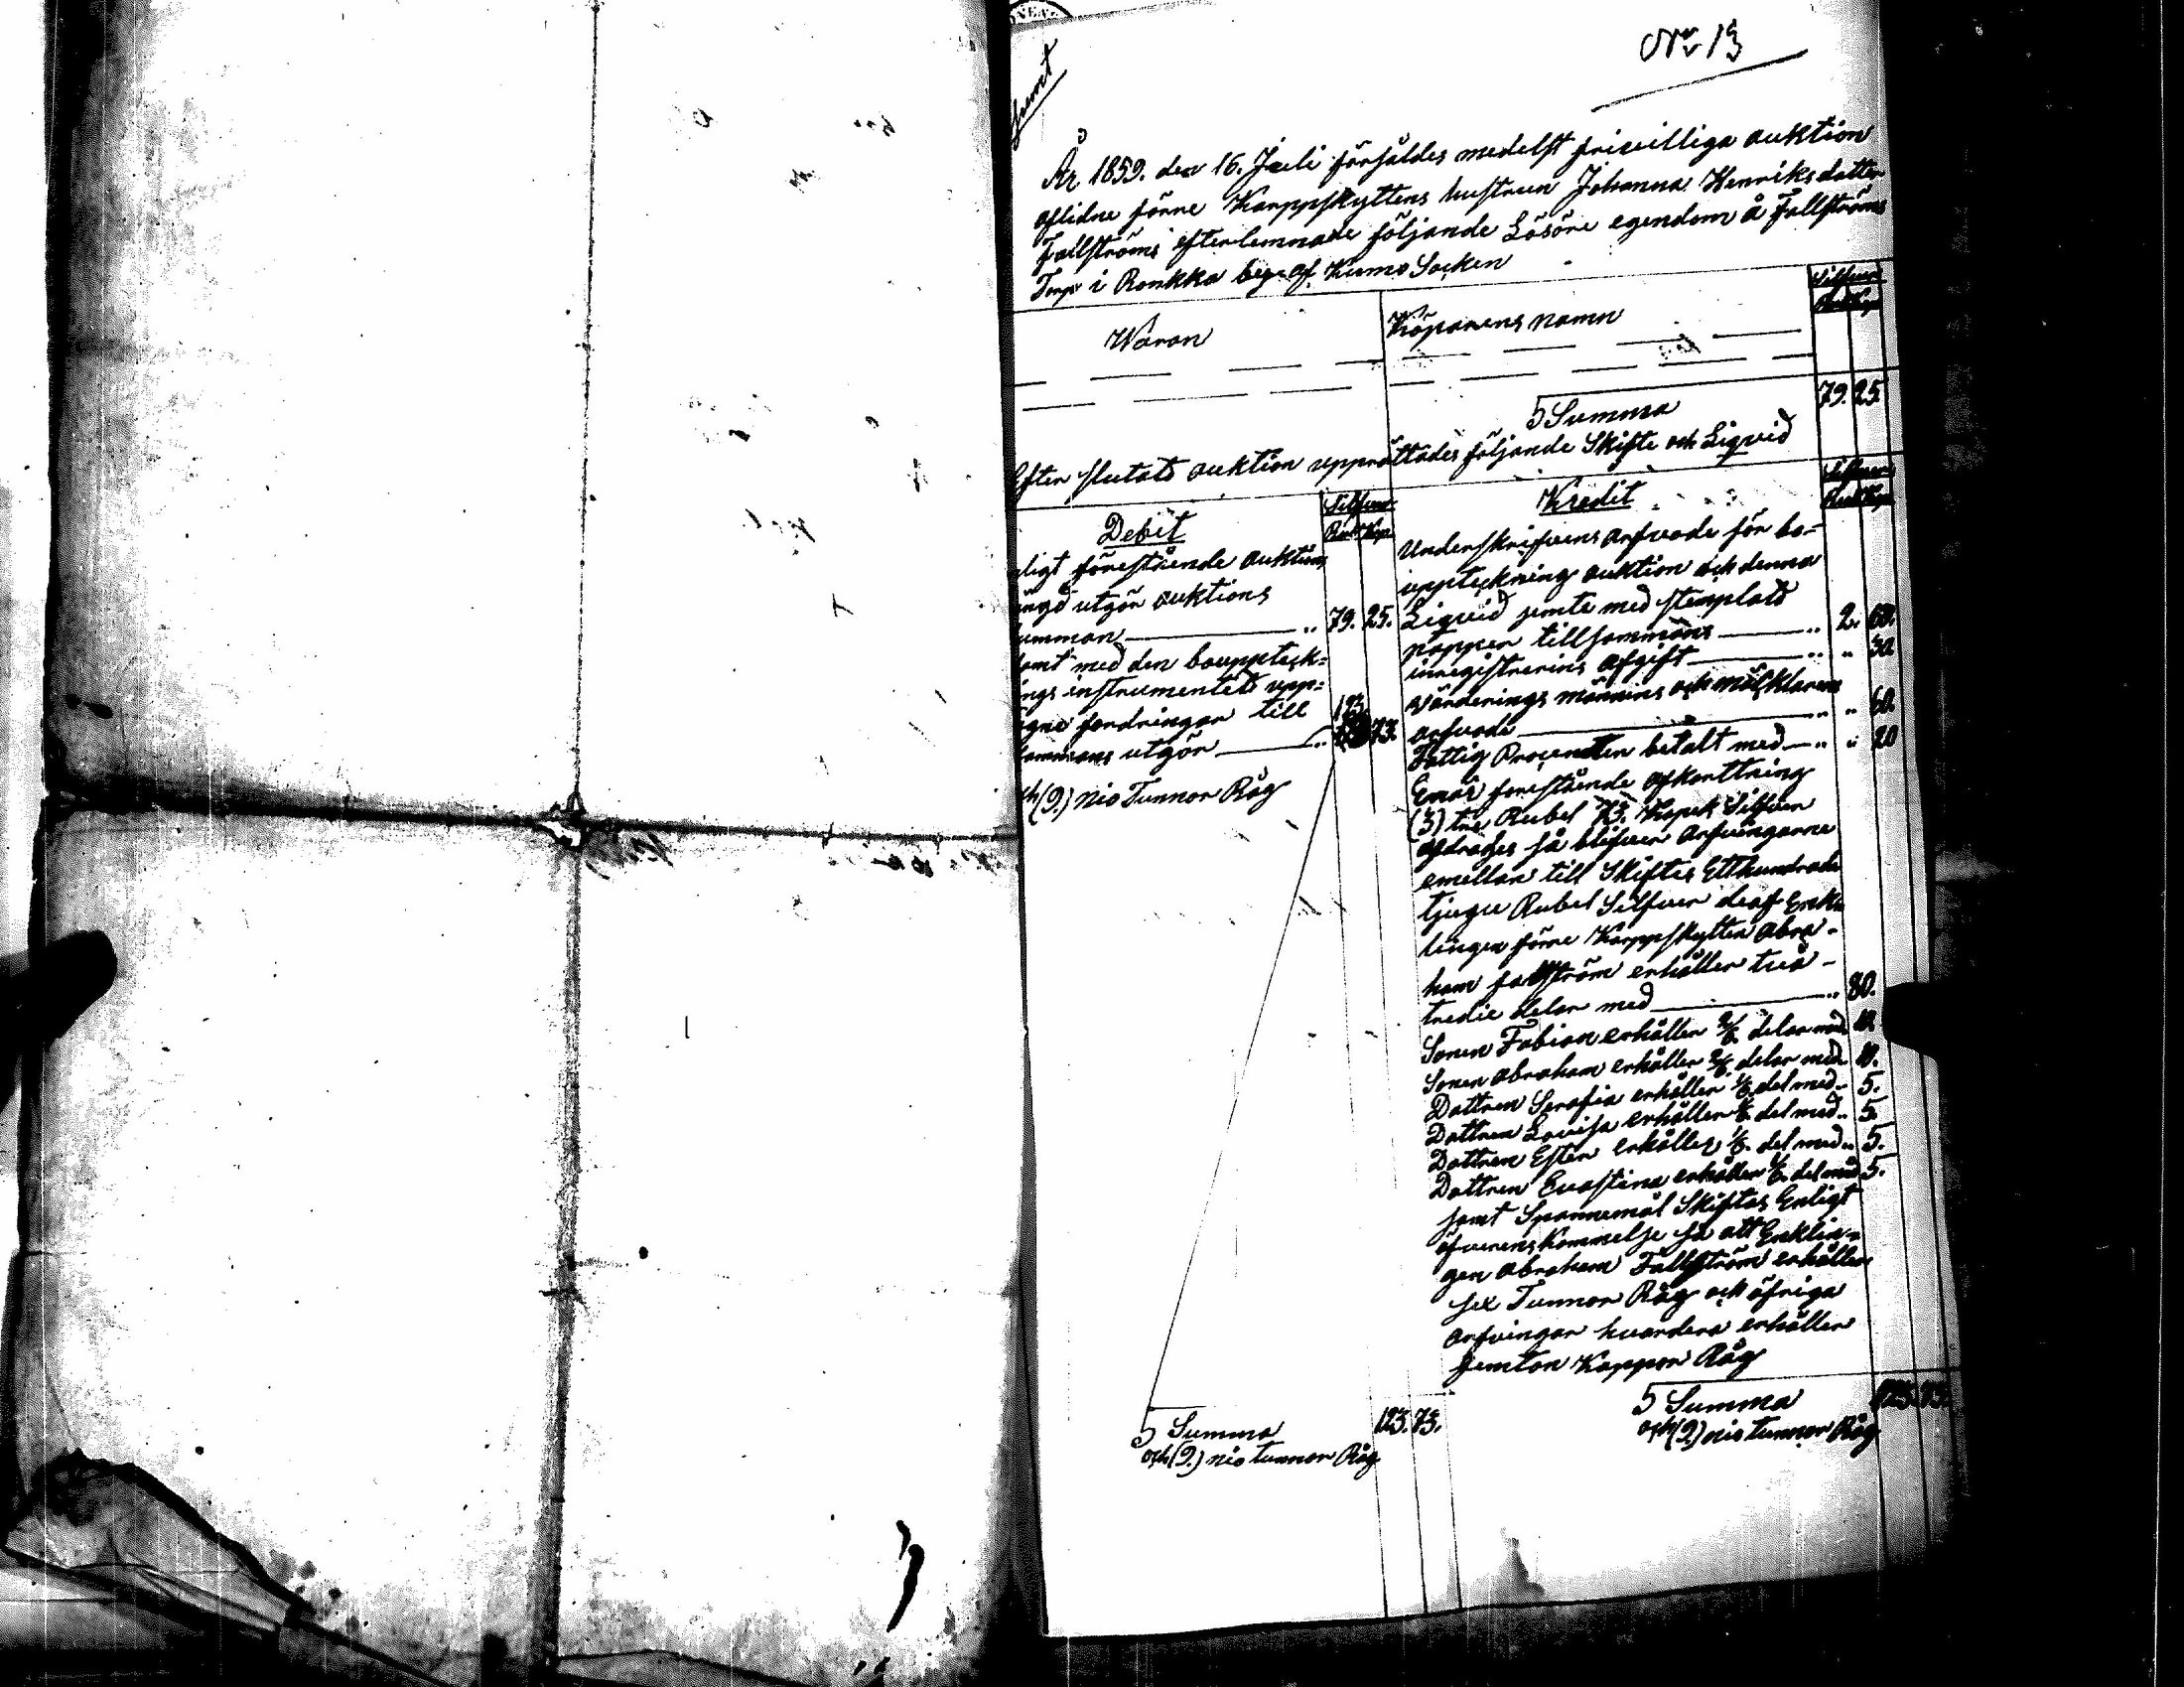 Nr 13
År 1859. den 16. Juli försåldes medelst frivilliga auktion
aflidne förre Karppskyttens hustrun Johanna Henriksdotter
Fallströms efterlemnade följande Lösöre egendom å Fallströms
Torp i Ronkka by af Kumo Socken
Silfver
Waran Köparens namn Rub Kop
5 Summa 79. 25.
Efter slutats auktion upprättades följande Skifte och Liqvid
Debit
Silfver
Rub Kop
ligt förestående auktions
ängd utgör auktions
umman 79. 25.
samt med den bouppteck-
ings instrumentets upp-
ägne fordringar till
ammans utgör 123 73.
och (9.) nio Tunnor Råg
5 Summa 123. 73.
och (9.) nio tunnor Råg
Kredit
Silfver
Rub Kop
Underskrifvens arfvode för bo-
uppteckning auktion och denna
Liqvid jemte med stemplats
papper tillsammans 2. 60.
inregistrerins afgift " 30
värderings männins och målsklarens
arfvode " 60.
Fattig Procenten betalt med " 20
förestående afkorttning
(3) tre Rubel 73. Kopek Silfver
afdrages så blifver Arfvingarne
emellan till Skiftes Etthundrade
tjugu Rubel Silfver deraf Enk-
lingen förre Karppskytten Abra-
ham Fallström erhåller två-
tredie delar med 80.
Sonen Fabian erhåller 2/8 delar med 10.
Sonen Abraham erhåller 2/8 delar med 10.
Dottren Serafia erhåller 1/8 del med 5.
Dottren Lovisa erhåller 1/8 del med 5.
Dottren Ester erhåller 1/8 del med 5.
Dottren Evastina erhåller 1/8 del med 5.
samt Spannemål Skiftas Enligt
öfverenskommelse så att Enklin-
gen Abraham Fallström erhåller
sex Tunnor Råg och öfriga
arfvingar hvardera erhåller
femton Kappar Råg
5 Summa 123. 73.
och (9.) nio tunnor Råg